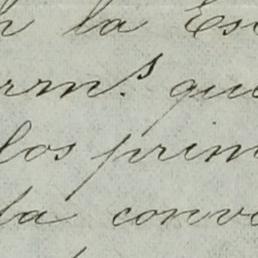 n la Es
rm.s que
los prim
la conve